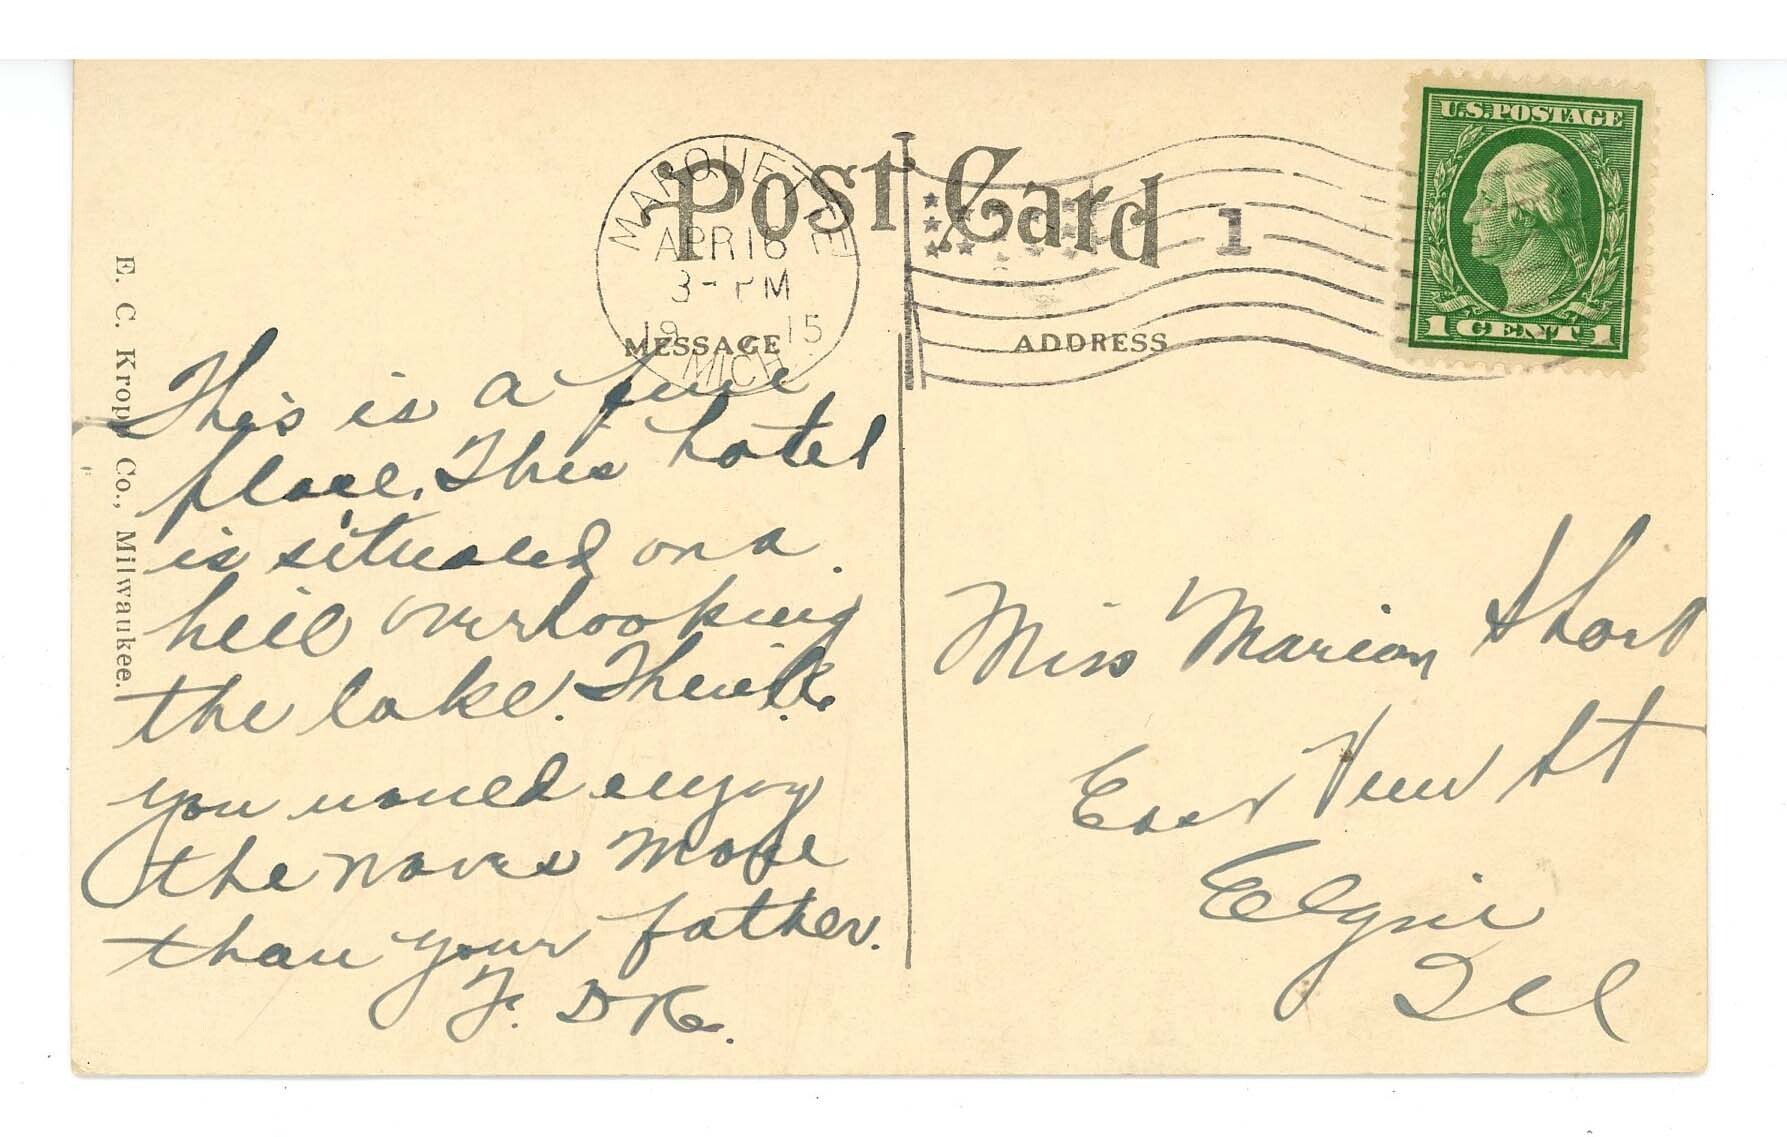 U.S. POSTAGE
1 CENT 1
Post Card
MARQUETTE
APR 16
3 - PM
1915
MICH.
1
MESSAGE
ADDRESS
E. C. Kropp Co., Milwaukee.
This is a fine
place. This hotel
is situated on a
hill overlooking
the lake. Think
you would enjoy
the more
than your father.
F. D K.
Miss Marion Short
East View St
Elgin
Ill